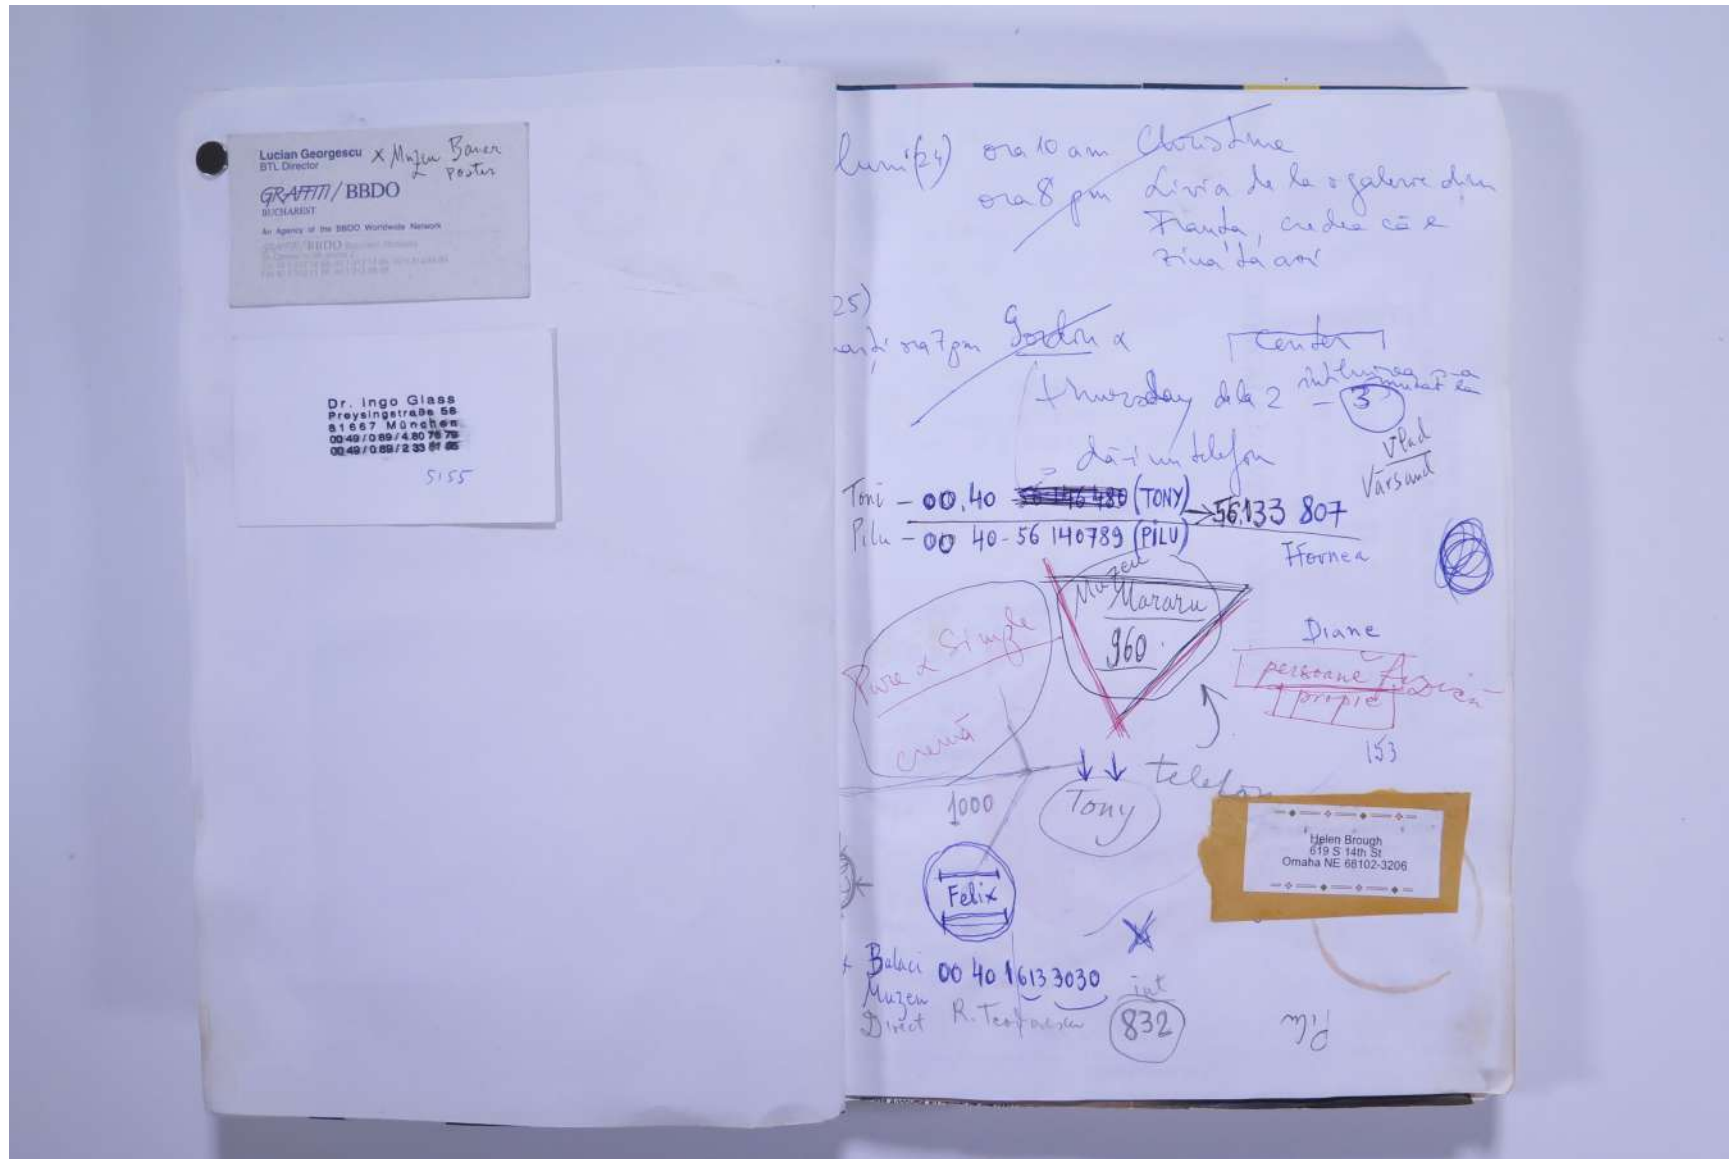 Lucian Georgescu x Muzeu Baner
BTL Director poster
GRAFFITI / BBDO
BUCHAREST
An Agency of the BBDO Worldwide Network
Dr. Ingo Glass
Preysingstraße 56
81667 München
0049/089/4807679
5155
luni (24) ora 10 am Christine
ora 8 pm Livia de la o galerie din
Franța, credea că e
ziua ta azi
25)
marți ora 7 pm Gordon x center
thursday de la 2 - 3 întîlnirea s-a mutat la
dă-i un telefon
Vlad
Varsand
Toni - 00.40 (TONY) → 56.133 807
Pilu - 00 40 - 56 140789 (PILU)
Muzeu
Mararu
960
Pure & Simple
cremă
Diane
persoane fizică
propie
153
telefon
1000
Tony
Helen Brough
619 S 14th St
Omaha NE 68102-3206
Felix
x Balaci 00 40 1 613 3030 int
Muzeu
Direct R. 832
Pilu